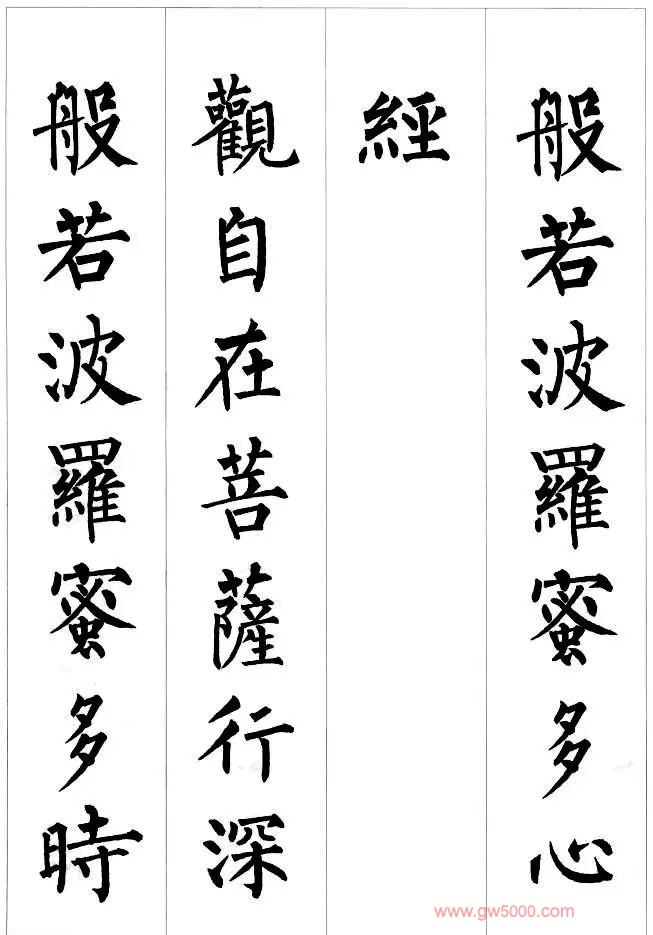 般若波羅蜜多心
經
觀自在菩薩行深
般若波羅蜜多時
www.gw5000.com